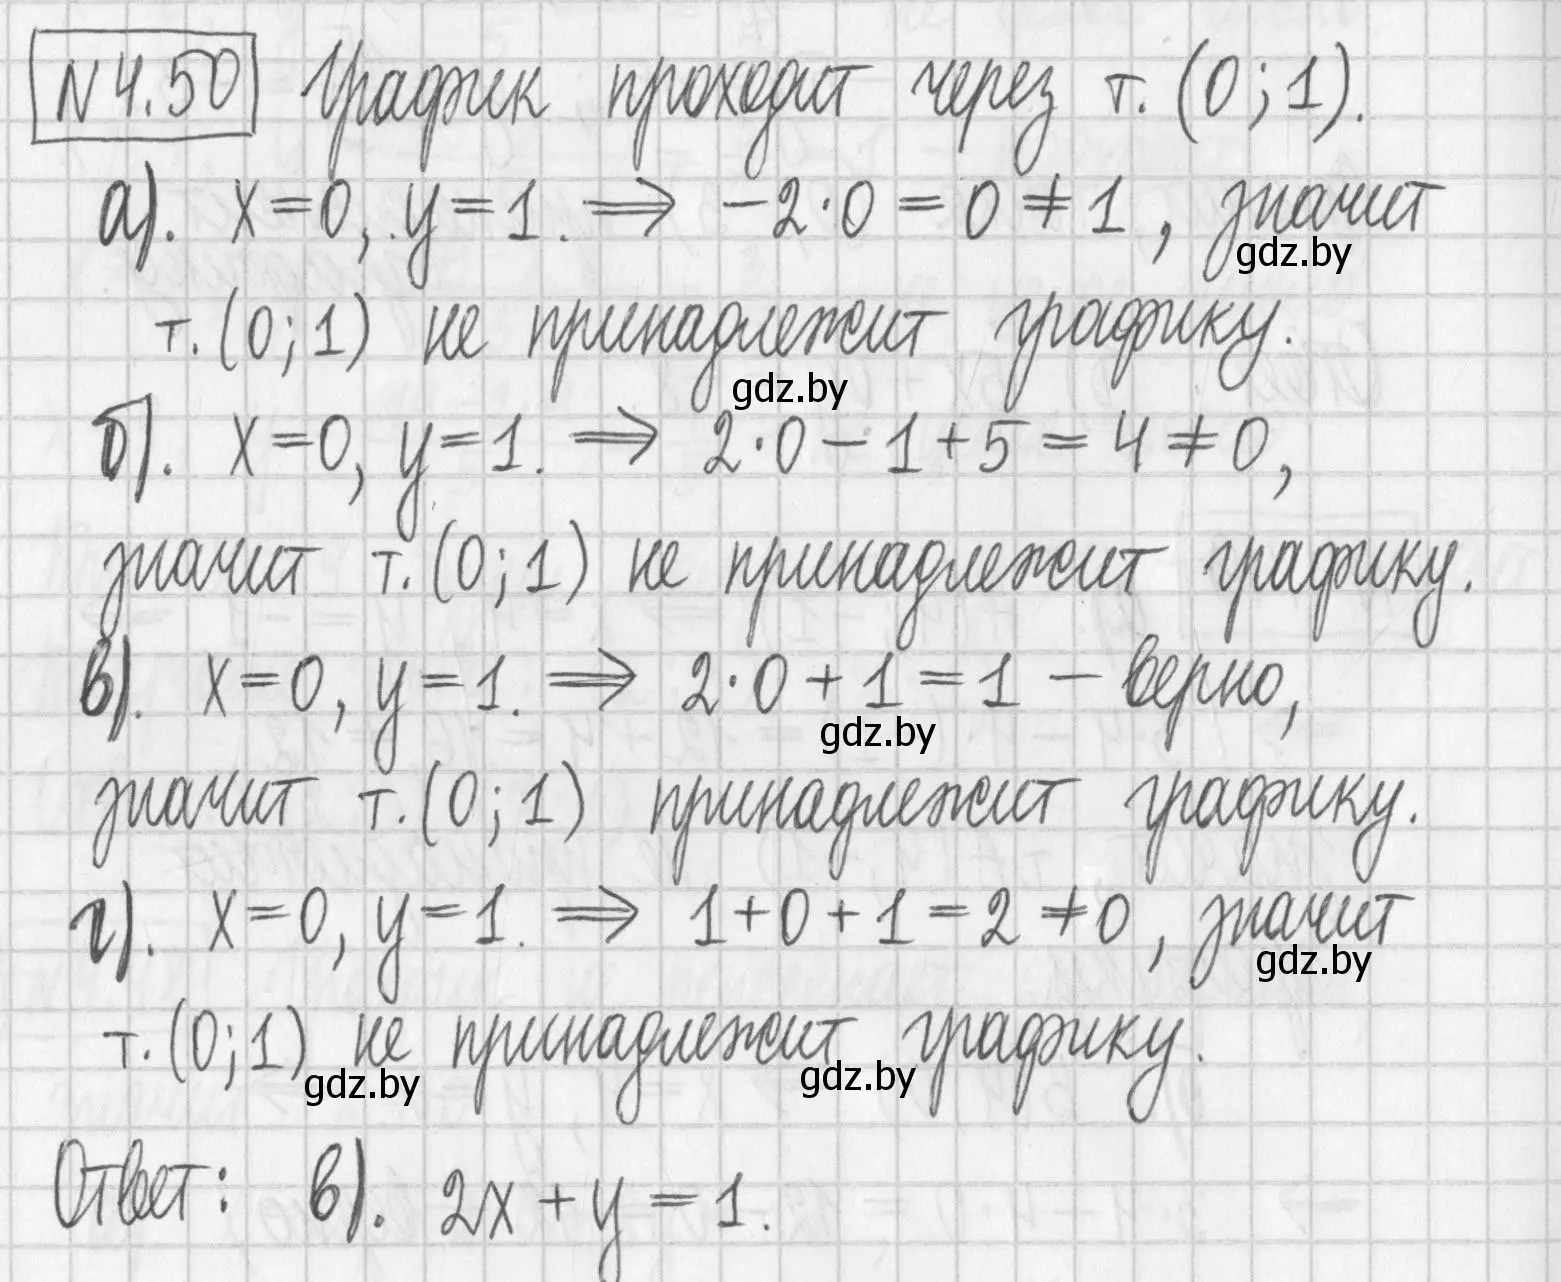 N 4.50 График проходит через т. (0;1).
а). x=0, y=1. ⟹ -2·0=0≠1, значит
gdz.by
т.(0;1) не принадлежит графику.
gdz.by
б). x=0, y=1. ⟹ 2·0-1+5=4≠0,
значит т.(0;1) не принадлежит графику.
в). x=0, y=1. ⟹ 2·0+1=1 – верно,
gdz.by
значит т.(0;1) принадлежит графику.
г). x=0, y=1. ⟹ 1+0+1=2≠0, значит
gdz.by
т.(0;1) не принадлежит графику.
gdz.by gdz.by
Ответ: в). 2x+y=1.